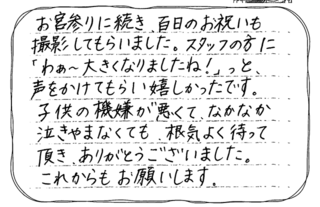 お宮参りに続き、百日のお祝いも
撮影してもらいました。スタッフの方に
「わぁ〜大きくなりましたね!」っと、
声をかけてもらい嬉しかったです。
子供の機嫌が悪くて、なかなか
泣きやまなくても、根気よく待って
頂き、ありがとうございました。
これからもお願いします。